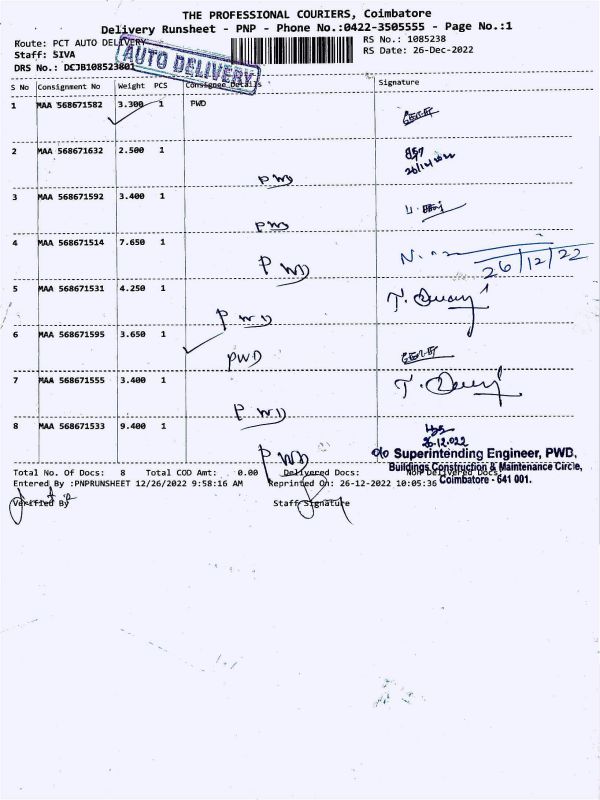 THE PROFESSIONAL COURIERS, Coimbatore
Delivery Runsheet - PNP - Phone No.:0422-3505555 - Page No.:1
Route: PCT AUTO DELIVERY
RS No.: 1085238
Staff: SIVA
RS Date: 26-Dec-2022
DRS No.: DCJB108523801
AUTO DELIVERY
S No Consignment No Weight PCS Consignee Details Signature
1 MAA 568671582 3.300 1 PWD
2 MAA 568671632 2.500 1
26/12/2022
PWD
3 MAA 568671592 3.400 1
PWD
4 MAA 568671514 7.650 1
PWD
26/12/22
5 MAA 568671531 4.250 1
PWD
6 MAA 568671595 3.650 1
PWD
7 MAA 568671555 3.400 1
PWD
8 MAA 568671533 9.400 1
26-12.022
PWD
o/o Superintending Engineer, PWD,
Buildings Construction & Maintenance Circle,
Coimbatore - 641 001.
Total No. Of Docs: 8 Total COD Amt: 0.00 Delivered Docs: Non Delivered Docs:
Entered By :PNPRUNSHEET 12/26/2022 9:58:16 AM Reprinted On: 26-12-2022 10:05:36
Verified By Staff Signature